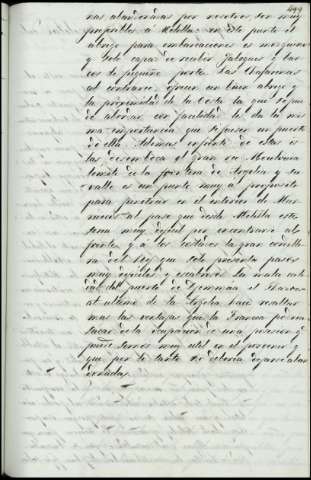 499
nas abandonadas por nosotros, son muy
preferibles á Melilla: en este puerto el
abrigo para embarcaciones es mezquino
y solo capaz de recibir faluchos ó bar
cos de pequeño porte. Las Chafarinas
al contrario ofrecen un buen abrigo y
la proximidad de la Costa la que se pue
de abordar con facilidad le da la mis
ma importancia que si fuesen un puerto
de ella. Ademas enfrente de estas is
las desemboca el gran rio Moulouia
limite de la frontera de Argelia y su
valle es un punto muy á proposito
para penetrar en el interior de Mar
ruecos al paso que desde Melilla este
seria muy dificil por encontrarse al
frente y á los costados la gran cordille
ra del Rif que solo presenta pasos
muy dificiles y escabrosos. La mala cali
dad del puerto de Djemmaa el Ghazaouat
al ultimo de la Argelia hace resaltar
mas las ventajas que la Francia podria
sacar de la ocupacion de una posesion q.
puede sernos muy util en el porvenir y
que por lo tanto no deberia dejarse aban
donadas.